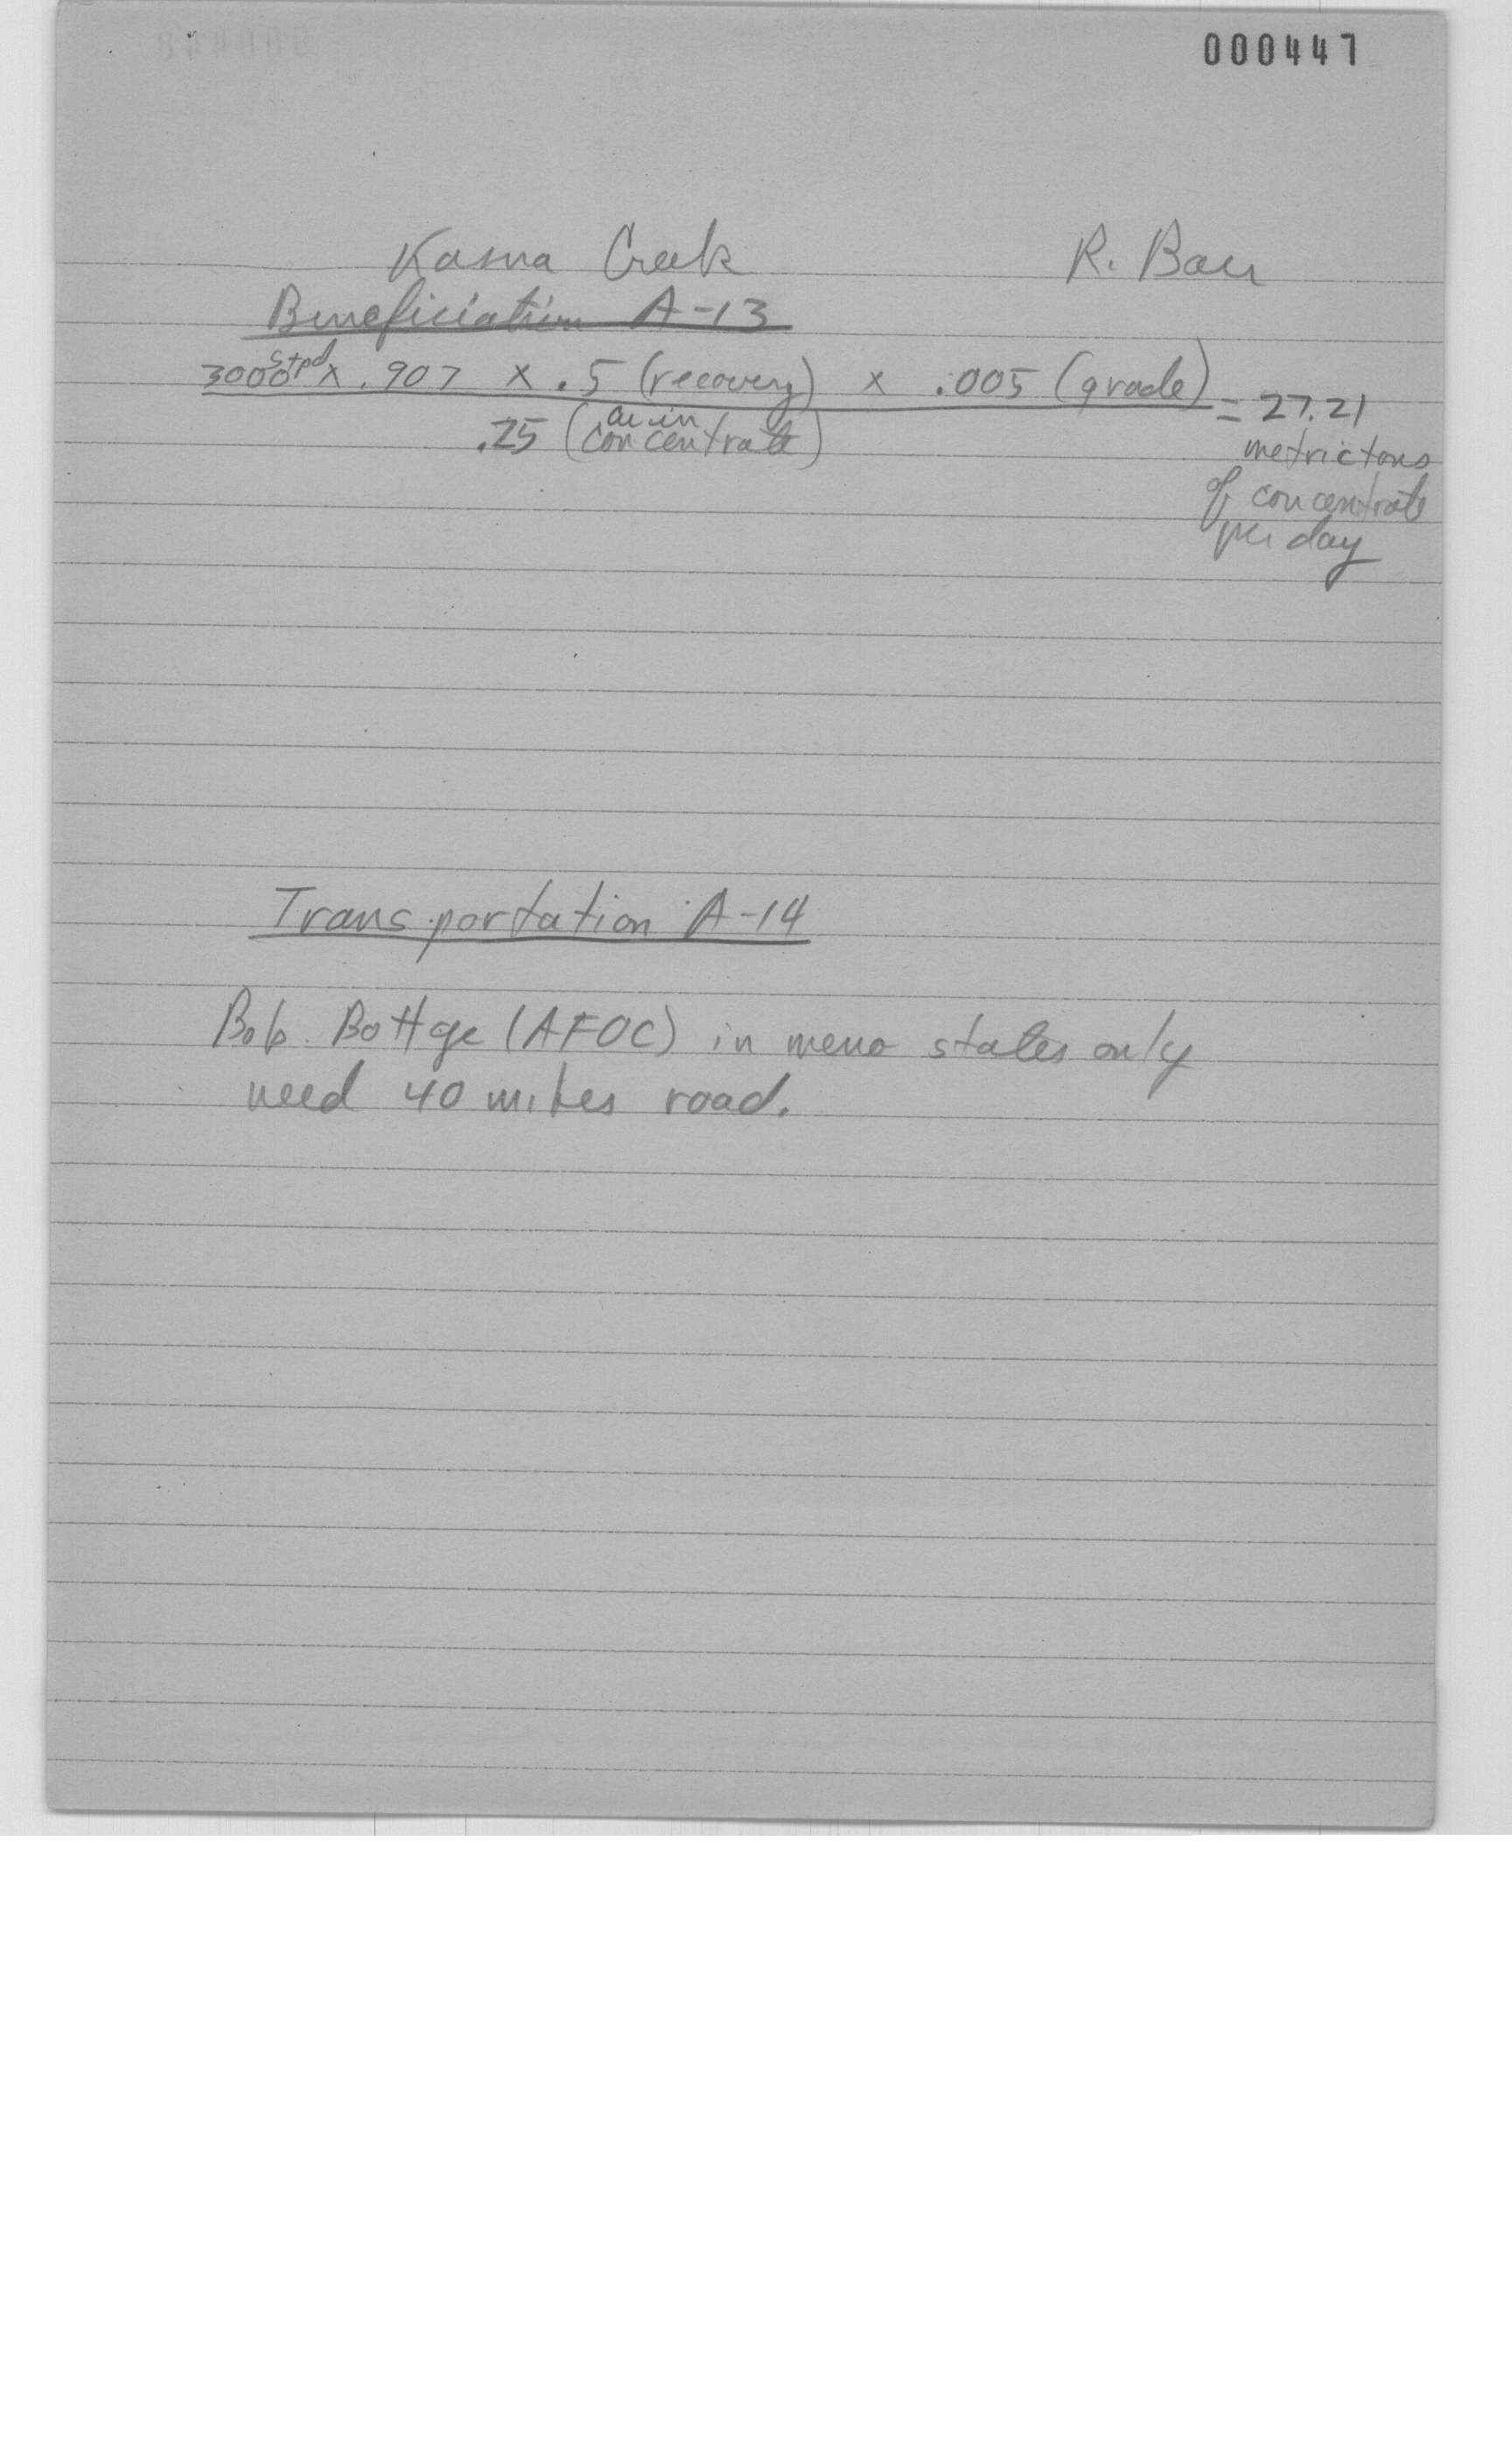 000447
Kasna Creek R. Baer
Beneficiation A-13
3000 stpd x .907 x .5 (recovery) x .005 (grade) = 27.21
.25 (cu in concentrate)
metric tons
of concentrate
per day
Transportation A-14
Bob Bottge (AFOC) in memo states only
need 40 miles road.